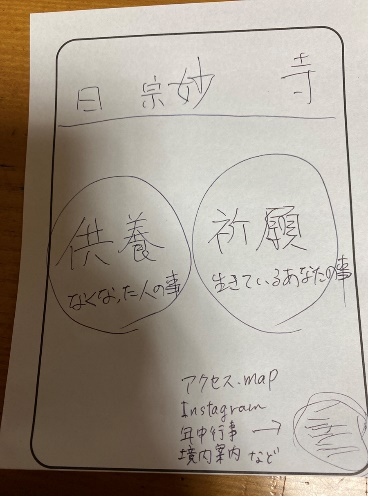 日 宗妙 寺
供養
なくなった人の事
祈願
生きているあなたの事
アクセス.map
Instagram
年中行事 →
境内案内 など